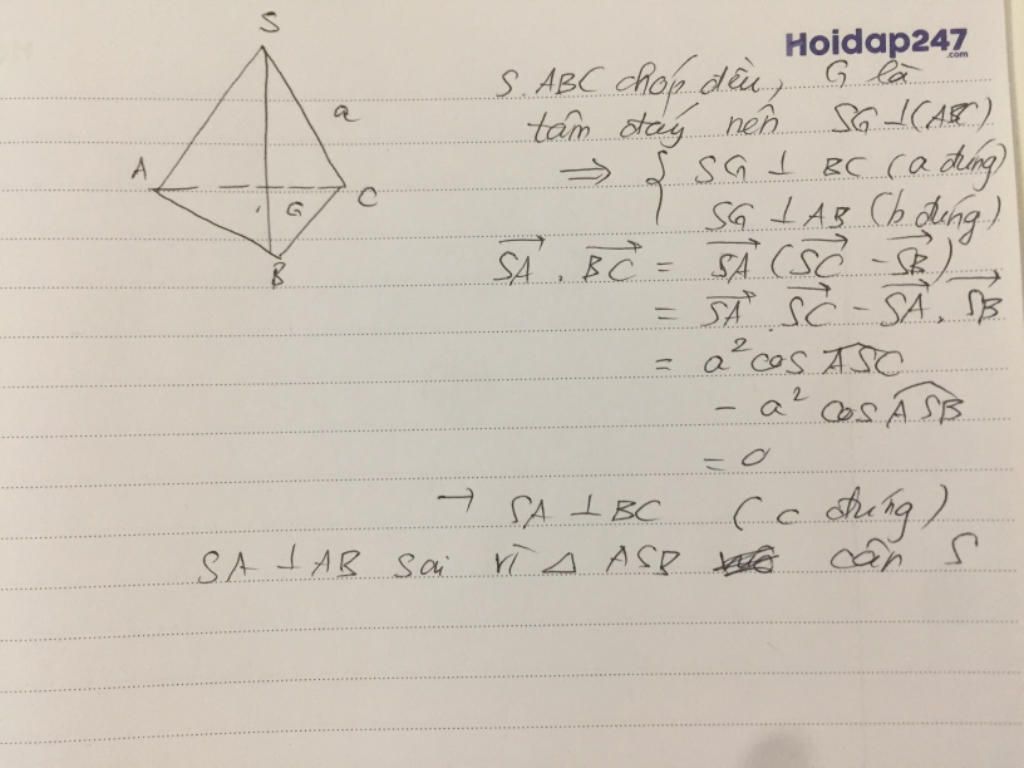 Hoidap247
.com
S
a
A
C
G
B
S.ABC chóp đều, G là
tâm đáy nên SG ⊥ (ABC)
⇒ { SG ⊥ BC (a đúng)
SG ⊥ AB (b đúng)
\overrightarrow{SA} . \overrightarrow{BC} = \overrightarrow{SA} (\overrightarrow{SC} - \overrightarrow{SB})
= \overrightarrow{SA} . \overrightarrow{SC} - \overrightarrow{SA} . \overrightarrow{SB}
= a² cos \widehat{ASC}
- a² cos \widehat{ASB}
= 0
→ SA ⊥ BC (c đúng)
SA ⊥ AB sai vì Δ ASB cân S